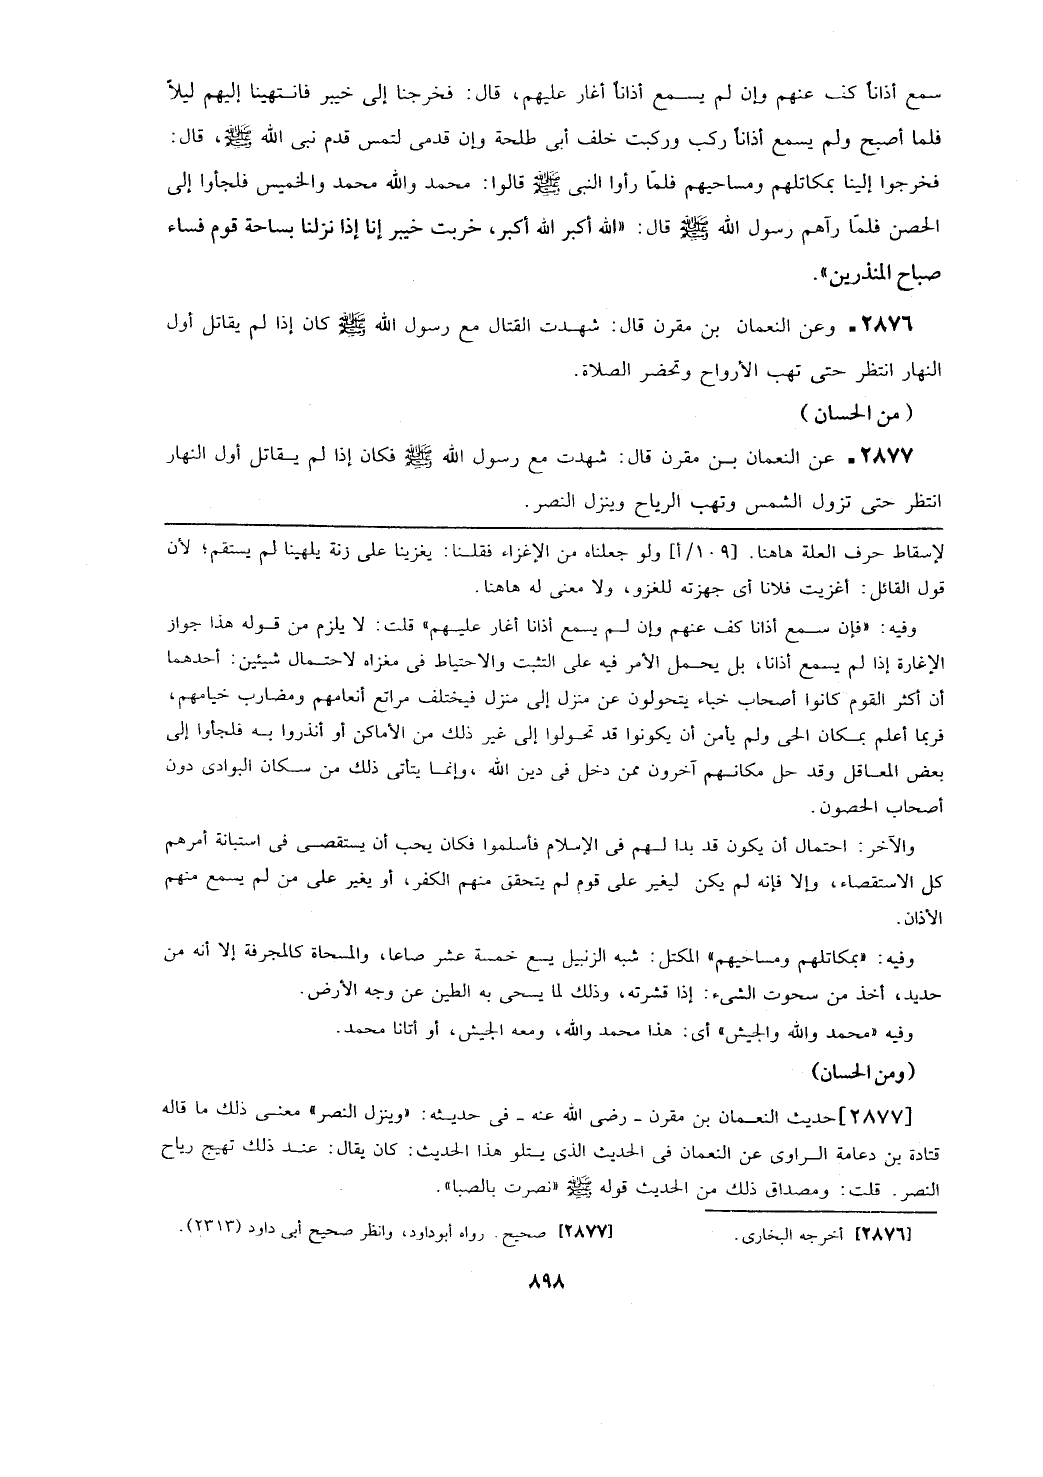 سمع أذاناً كف عنهم وإن لم يسمع أذاناً أغار عليهم، قال: فخرجنا إلى خيبر فانتهينا إليهم ليلاً
فلما أصبح ولم يسمع أذاناً ركب وركبت خلف أبى طلحة وإن قدمى لتمس قدم نبى الله ﷺ، قال:
فخرجوا إلينا بمكاتلهم ومساحيهم فلمّا رأوا النبى ﷺ قالوا: محمد والله محمد والخميس فلجأوا إلى
الحصن فلمّا رآهم رسول الله ﷺ قال: «الله أكبر الله أكبر، خربت خيبر إنا إذا نزلنا بساحة قوم فساء
صباح المنذرين».
٢٨٧٦. وعن النعمان بن مقرن قال: شهدت القتال مع رسول الله ﷺ كان إذا لم يقاتل أول
النهار انتظر حتى تهب الأرواح وتحضر الصلاة.
(من الحسان)
٢٨٧٧. عن النعمان بن مقرن قال: شهدت مع رسول الله ﷺ فكان إذا لم يقاتل أول النهار
انتظر حتى تزول الشمس وتهب الرياح وينزل النصر.
لإسقاط حرف العلة هاهنا. [١٠٩/أ] ولو جعلناه من الإغزاء فقلنا: يغزينا على زنة يلهينا لم يستقم؛ لأن
قول القائل: أغزيت فلانا أى جهزته للغزو، ولا معنى له هاهنا.
وفيه: «فإن سمع أذانا كف عنهم وإن لم يسمع أذانا أغار عليهم» قلت: لا يلزم من قوله هذا جواز
الإغارة إذا لم يسمع أذانا، بل يحمل الأمر فيه على التثبت والاحتياط فى مغزاه لاحتمال شيئين: أحدهما
أن أكثر القوم كانوا أصحاب خباء يتحولون عن منزل إلى منزل فيختلف مراتع أنعامهم ومضارب خيامهم،
فربما أعلم بمكان الحى ولم يأمن أن يكونوا قد تحولوا إلى غير ذلك من الأماكن أو أنذروا به فلجأوا إلى
بعض المعاقل وقد حل مكانهم آخرون ممن دخل فى دين الله ،وإنما يتأتى ذلك من سكان البوادى دون
أصحاب الحصون.
والآخر: احتمال أن يكون قد بدا لهم فى الإسلام فأسلموا فكان يحب أن يستقصى فى استبانة أمرهم
كل الاستقصاء، وإلا فإنه لم يكن ليغير على قوم لم يتحقق منهم الكفر، أو يغير على من لم يسمع منهم
الأذان.
وفيه: «بمكاتلهم ومساحيهم» المكتل: شبه الزنبيل يسع خمسة عشر صاعا، والمسحاة كالمجرفة إلا أنه من
حديد، أخذ من سحوت الشىء: إذا قشرته، وذلك لما يسحى به الطين عن وجه الأرض.
وفيه «محمد والله والجيش» أى: هذا محمد والله، ومعه الجيش، أو أتانا محمد.
(ومن الحسان)
[٢٨٧٧]حديث النعمان بن مقرن ـ رضى الله عنه ـ فى حديثه: «وينزل النصر» معنى ذلك ما قاله
قتادة بن دعامة الراوى عن النعمان فى الحديث الذى يتلو هذا الحديث: كان يقال: عند ذلك تهيج رياح
النصر. قلت: ومصداق ذلك من الحديث قوله ﷺ «نصرت بالصبا».
[٢٨٧٦] أخرجه البخارى. [٢٨٧٧] صحيح. رواه أبوداود، وانظر صحيح أبى داود (٢٣١٣).
٨٩٨